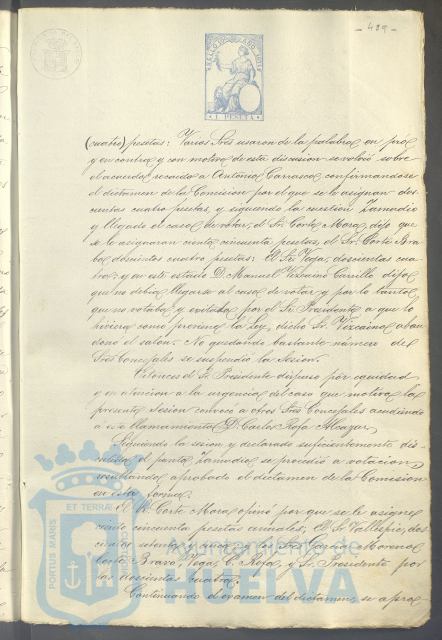 - 489 -
SELLO 10º AÑO 1891
1 PESETA
(cuatro) pesetas: Varios Sres usaron de la palabra en pró
y en contra y con motivo de esta discusion se volvió sobre
el acuerdo recaido a Antonio Carrasco, confirmandose
el dictamen de la Comision por el que se le asignan dos-
cientas cuatro pesetas, y siguiendo la cuestion Zamudio
y llegado el caso de votar, el Sr. Corte Mora, dijo que
se le asignaran ciento cincuenta pesetas, el Sr. Corte Bra-
bo doscientas cuatro pesetas: El Sr. Vega, doscientas cua-
tro: y en este estado D. Manuel Vizcaino Carrillo dijo
que no debia llegarse al caso de votar y por lo tanto,
que no votaba y invitado por el Sr. Presidente a que lo
hiciera como previene la Ley, dicho Sr. Vizcaino aban-
donó el salon. No quedando bastante número de
Sres Concejales se suspendió la sesion.
Entonces el Sr. Presidente dispuso por equidad
y en atencion a la urgencia del caso que motiva la
presente sesion convocó a otros Sres Concejales acudiendo
á este llamamiento D. Carlos Rofa Alcazar,
Siguiendo la sesion y declarado suficientemente dis-
cutido el punto Zamudio se procedió a votacion,
resultando aprobado el dictamen de la Comision
en esta forma.
El Sr. Corte Mora opinó por que se le asignen
ciento cincuenta pesetas anuales, El Sr. Vallepie, dos-
cientas setenta y los Sres Garcia Moreno
Corte Bravo, Vega, C. Rofa, y Sr. Presidente por
las doscientas cuatro.
Continuando el examen del dictamen, se apro-
PORTUS MARIS ET TERRAE
Ayuntamiento de
HUELVA